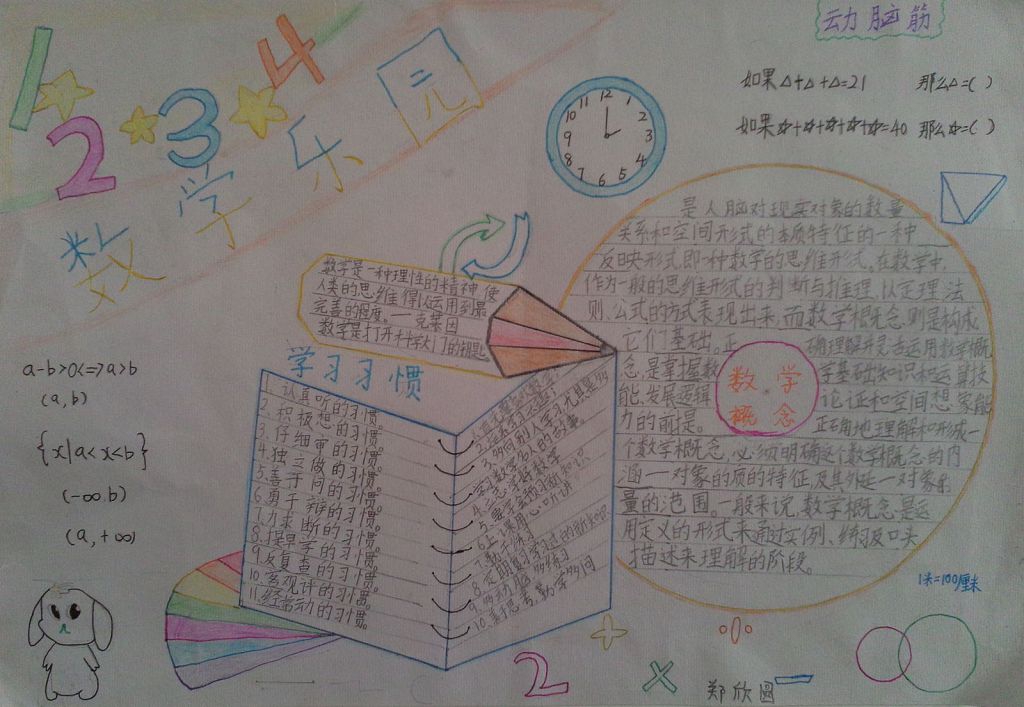 1 2 3 4
数学乐园
动脑筋
如果△+△+△=21 那么△=( )
如果☆+☆+☆+☆+☆=40 那么☆=( )
12 1 2 3 4 5 6 7 8 9 10 11
数学是一种理性的精神,使
人类的思维得以运用到最
完善的程度。一克莱因
数学是打开科学大门的钥匙
学习习惯
1. 认真听的习惯。
2. 积极想的习惯。
3. 仔细审的习惯。
4. 独立做的习惯。
5. 善于问的习惯。
6. 勇于辩的习惯。
7. 力求断的习惯。
8. 提早学的习惯。
9. 反复查的习惯。
10. 客观评的习惯。
11. 经常动的习惯。
学习数学名人的故事
10. 善于思考,勤学多问
数学
概念
是人脑对现实对象的数量
关系和空间形式的本质特征的一种
反映形式,即一种数学的思维形式。在数学中,
作为一般的思维形式的判断与推理,以定理、法
则、公式的方式表现出来,而数学概念则是构成
它们基础。正确理解并灵活运用数学概
念,是掌握数学基础知识和运算技
能、发展逻辑论证和空间想象能
力的前提。正确地理解和形成一
个数学概念,必须明确这个数学概念的内
涵——对象的质的特征,及其外延——对象的
量的范围。一般来说,数学概念是运
用定义的形式来通过实例、练习及口头
描述来理解的阶段。
a-b>0<=>a>b
(a,b)
{x|a<x<b}
(-∞.b)
(a,+∞)
1米=100厘米
+ ÷ 2 × -
郑欣圆